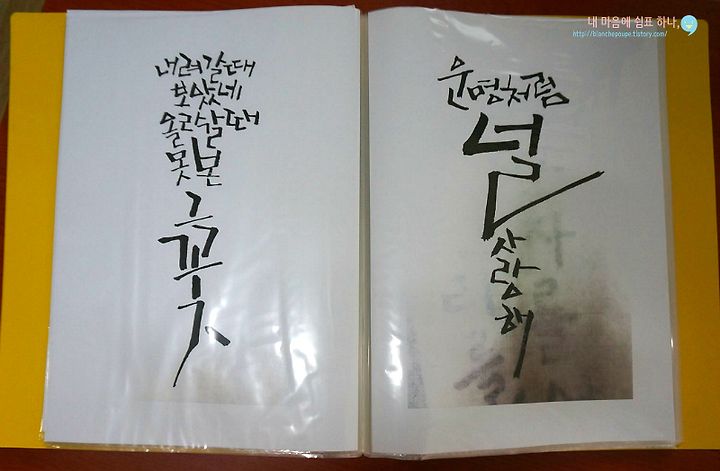 내 마음에 쉼표 하나,
http://blanchepoupe.tistory.com/
내려갈때
보았네
올라갈때
못본
그
꽃
운명처럼
널
사랑해